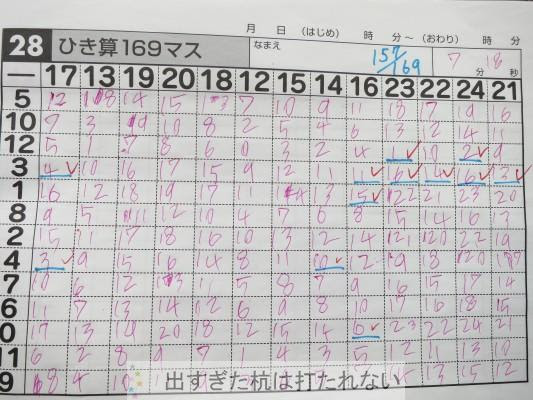 月 日 (はじめ) 時 分～(おわり) 時 分
28 ひき算169マス なまえ 157/169 7分 18秒
— 17 13 19 20 18 12 15 14 16 23 22 24 21
5 12 8 14 15 13 7 10 9 11 18 17 19 16
10 7 3 9 10 8 2 5 4 6 13 12 14 11
12 5 1 7 8 6 0 3 2 4 1 10 2 9
3 4 10 16 17 15 9 12 11 11 16 14 16 13
1 16 12 18 19 17 11 14 13 15 22 21 23 20
8 9 5 11 12 10 4 7 6 8 15 14 16 13
2 15 11 17 18 16 10 13 12 14 21 20 22 19
4 3 9 15 16 14 8 11 12 19 18 20 17
7 10 6 12 13 11 5 8 7 9 16 15 17 14
6 11 7 13 14 12 6 9 8 10 17 16 18 15
0 17 13 19 20 18 12 15 14 6 23 22 24 21
11 6 2 8 9 7 1 4 3 5 12 11 13 10
9 8 4 10 14 13 15 12
出すぎた杭は打たれない